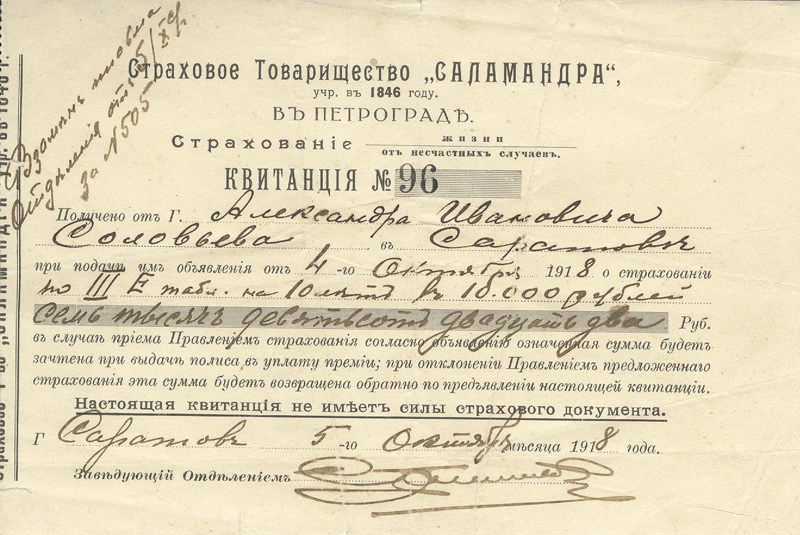 Взамѣнъ письма
Отдѣленія отъ 5/X 18 г.
за № 505
Страховое Товарищество „САЛАМАНДРА“,
учр. въ 1846 году.
ВЪ ПЕТРОГРАДѢ.
Страхованіе жизни
отъ несчастныхъ случаевъ.
КВИТАНЦІЯ № 96
Получено отъ Г. Александра Ивановича
Соловьева въ Саратовѣ
при подачѣ имъ объявленія отъ 4-го Октября 1918 о страхованіи
по III E табл. на 10 лѣтъ въ 10.000 рублей
семь тысячъ девятьсотъ двадцать два Руб.
въ случаѣ пріема Правленіемъ страхованія согласно объявленію означенная сумма будетъ
зачтена при выдачѣ полиса въ уплату преміи; при отклоненіи Правленіемъ предложеннаго
страхованія эта сумма будетъ возвращена обратно по предъявленіи настоящей квитанціи.
Настоящая квитанція не имѣетъ силы страхового документа.
Г Саратовъ 5-го Октября мѣсяца 1918 года.
Завѣдующій Отдѣленіемъ